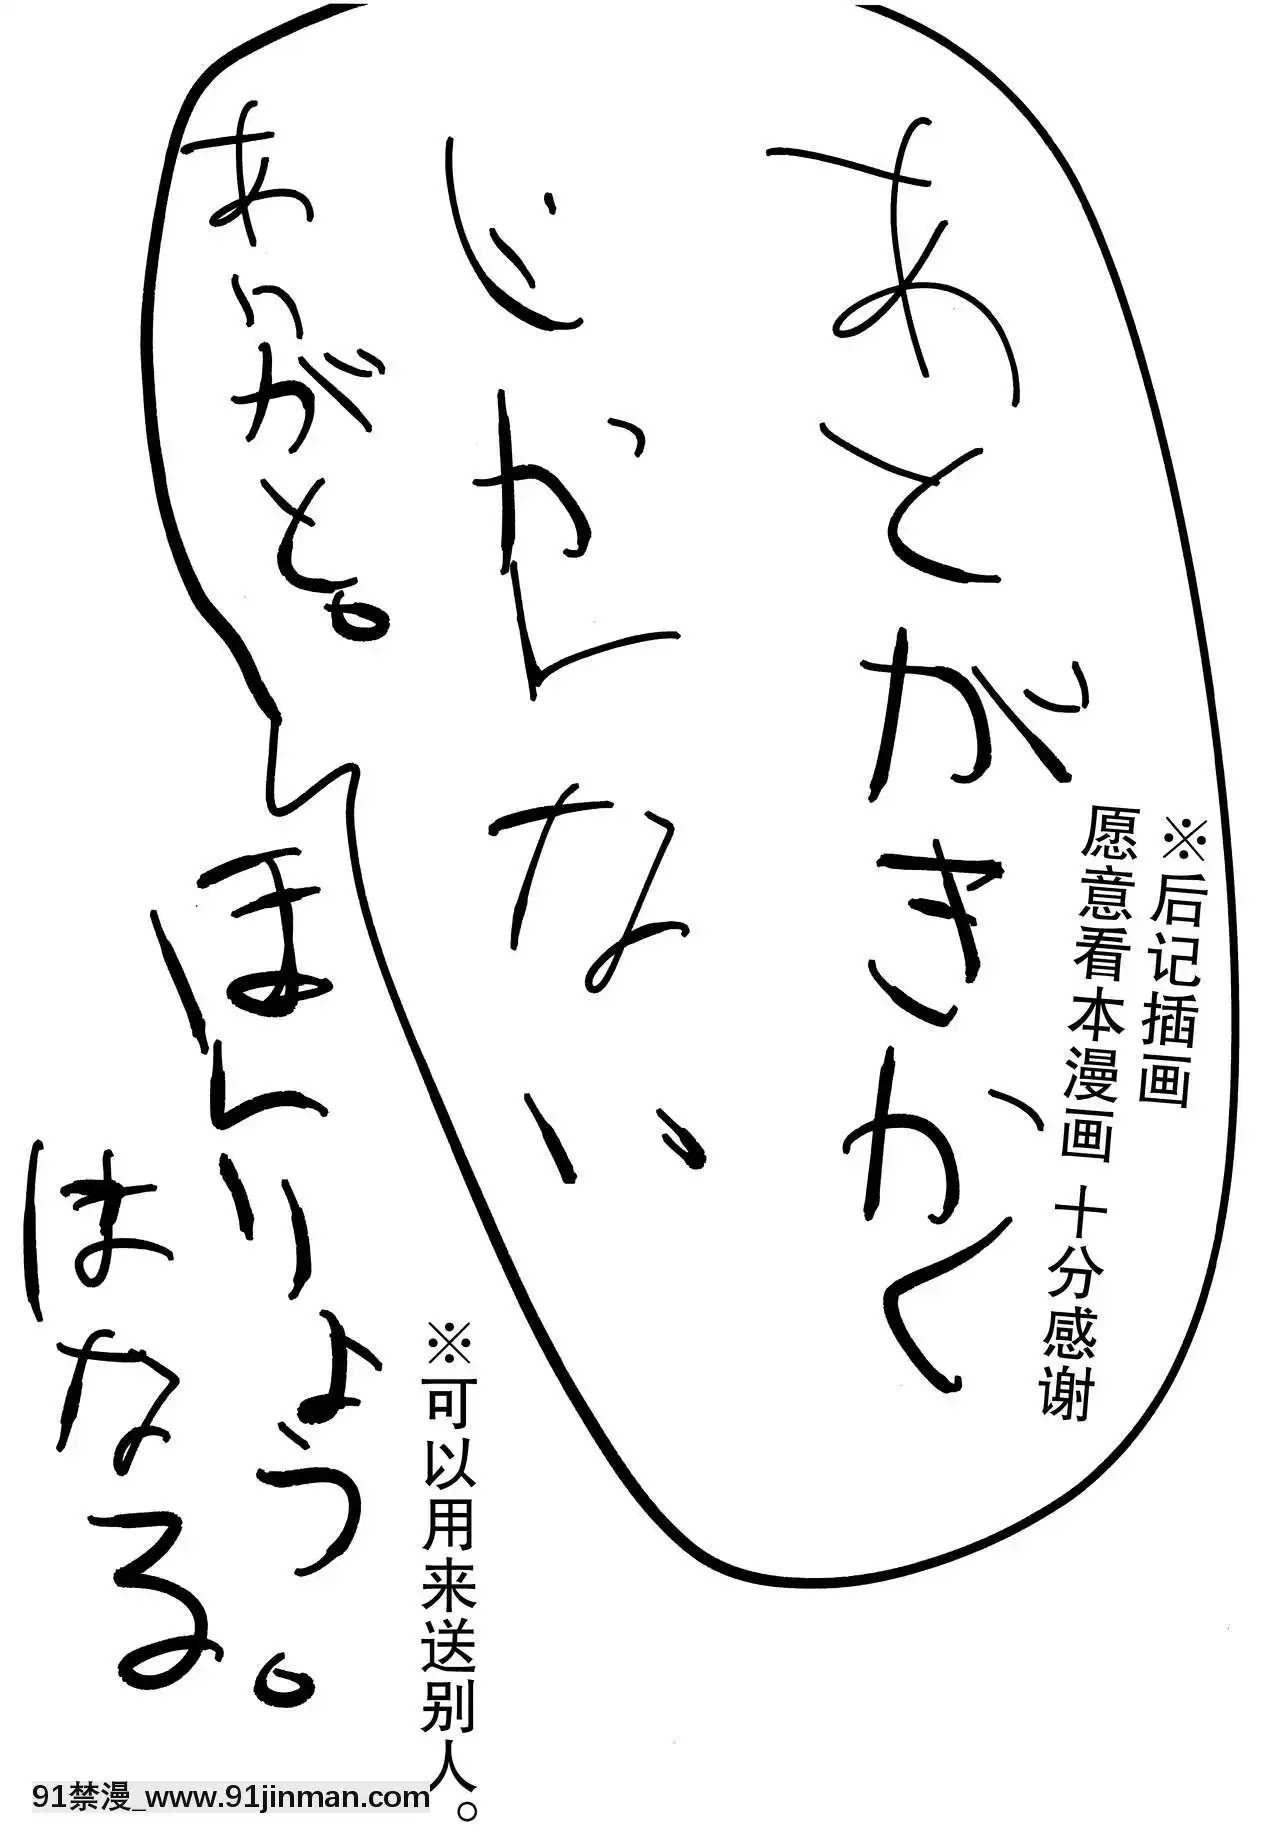 あとがきかく
じかんない
ありがと。
※后记插画
愿意看本漫画 十分感谢
ほんりょう
はなる。
※可以用来送别人。
91禁漫_www.91jinman.com